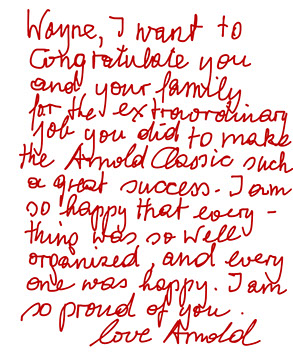 Wayne, I want to
Congratulate you
and your family
for the extraordinary
job you did to make
the Arnold Classic such
a great success. I am
so happy that every-
thing was so well
organized, and every
one was happy. I am
so proud of you.
love Arnold